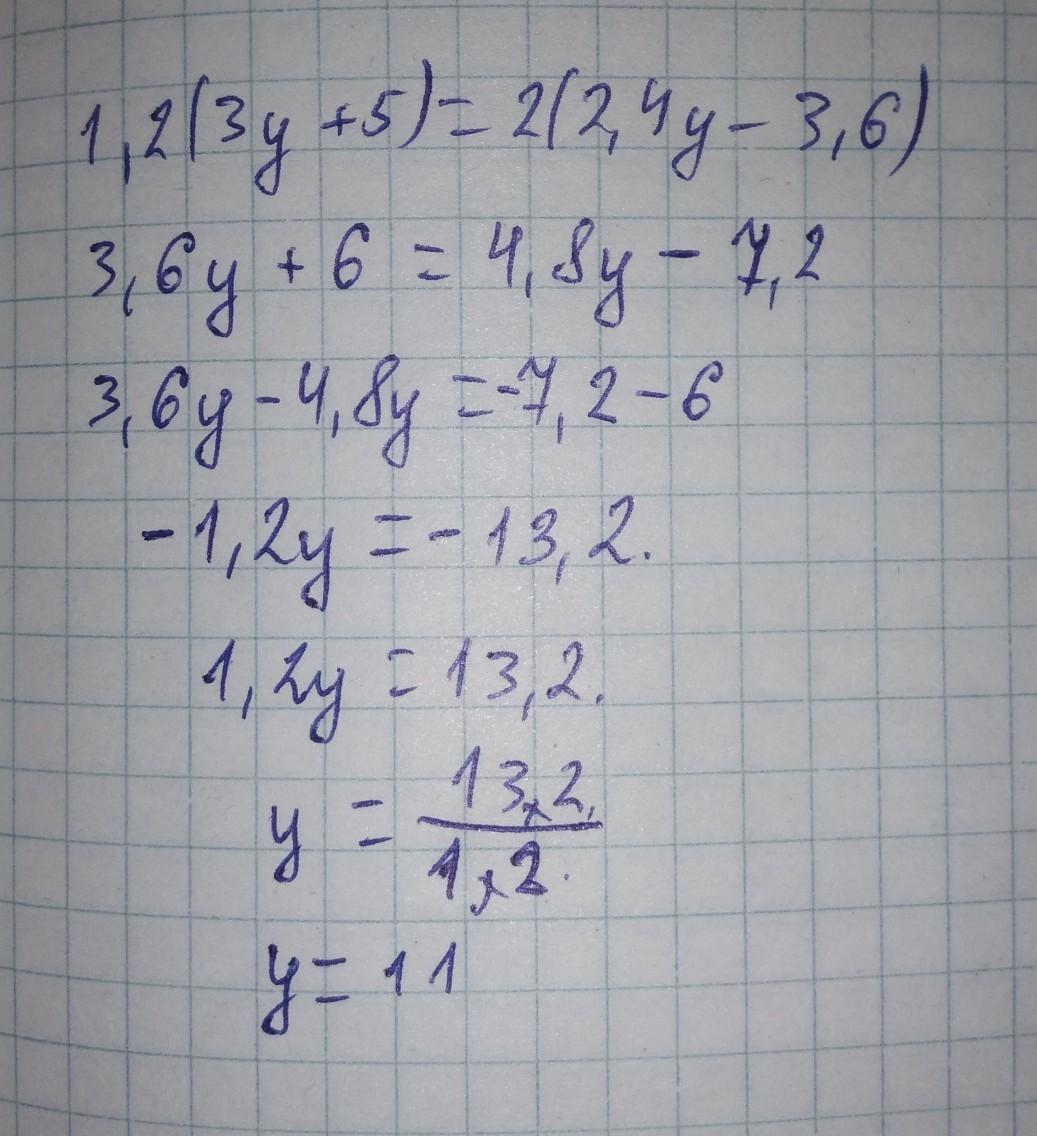 1,2(3y+5)=2(2,4y-3,6)
3,6y+6=4,8y-7,2
3,6y-4,8y=-7,2-6
-1,2y=-13,2.
1,2y=13,2.
y=13,2/1,2.
y=11